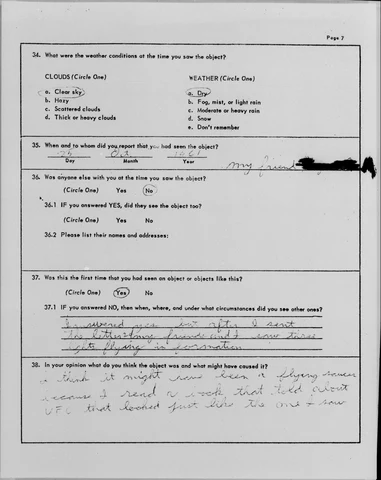 Page 7
34. What were the weather conditions at the time you saw the object?
CLOUDS (Circle One) WEATHER (Circle One)
a. Clear sky a. Dry
b. Hazy b. Fog, mist, or light rain
c. Scattered clouds c. Moderate or heavy rain
d. Thick or heavy clouds d. Snow
e. Don't remember
35. When and to whom did you report that you had seen the object?
25 Oct 1967
Day Month Year my friend
36. Was anyone else with you at the time you saw the object?
(Circle One) Yes No
36.1 IF you answered YES, did they see the object too?
(Circle One) Yes No
36.2 Please list their names and addresses:
37. Was this the first time that you had seen an object or objects like this?
(Circle One) Yes No
37.1 IF you answered NO, then when, where, and under what circumstances did you see other ones?
I answered yes but after I sent
the letter my friend and I saw three
lights flying in formation
38. In your opinion what do you think the object was and what might have caused it?
I think it might have been a flying saucer
because I read a book that told about
UFO that looked just like the one I saw